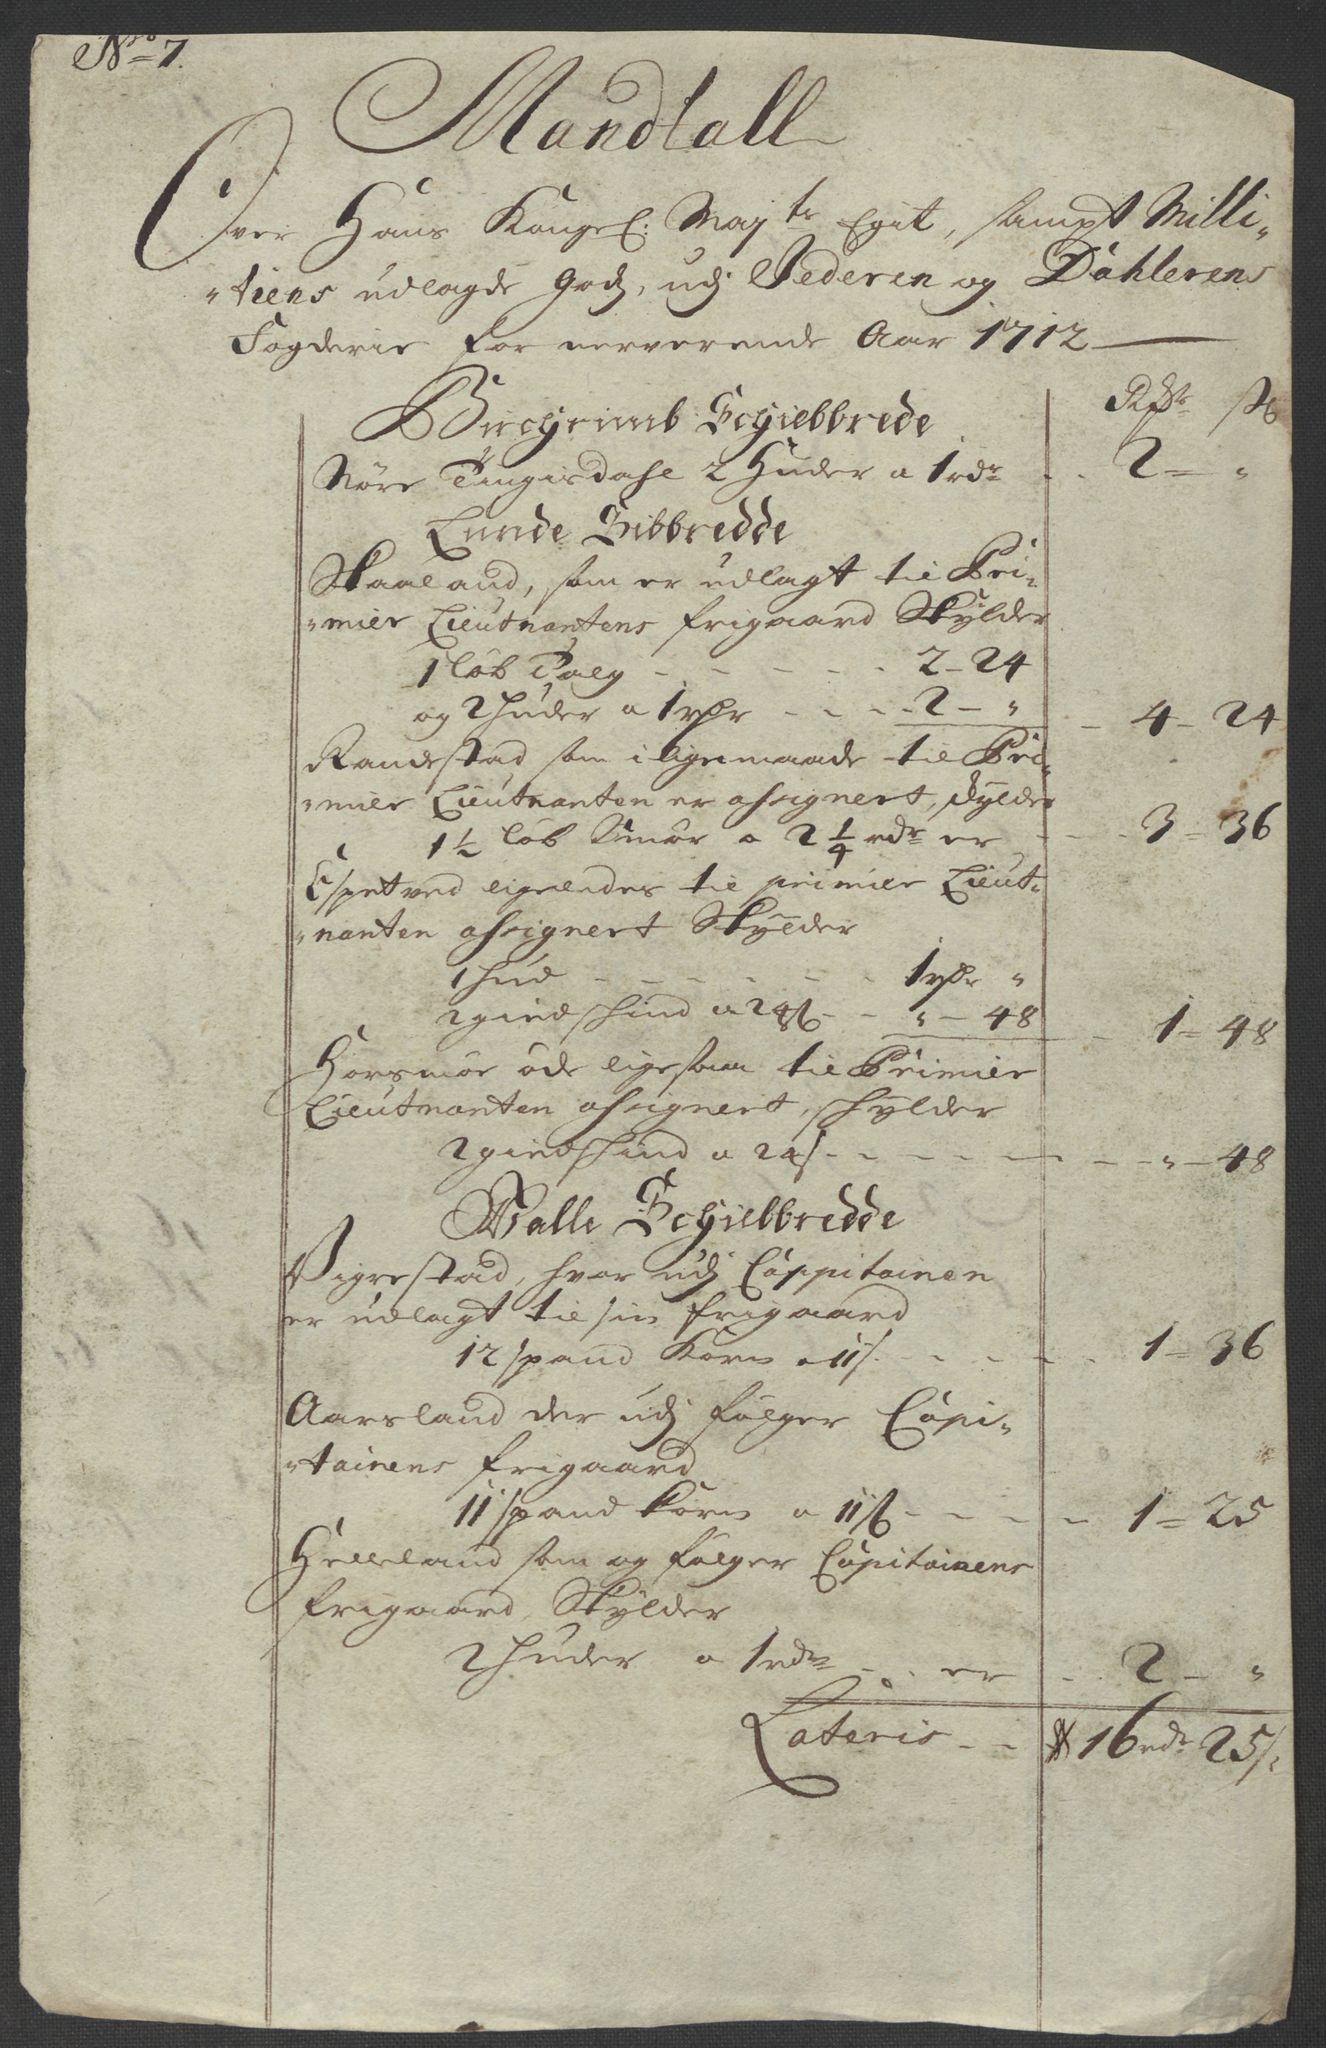 No 7.
Mandtall
Over Hans Kongel: Mayts Egit, sampt Milli„
„tiens udlagde Gods, udj Jederen og Dahlerens
Fogderie for nerverende Aar 1712
Rdr ß
Birchrimb Schiebbrede
Nóre Tingisdahl 2 Huder a 1 rdr - - 2 = „
Lunde Sibbredde
Skaaland, som er udlagt til Pri„
„mier Lieutnantens frigaard Skylder
1 lób Talg - - - - - 2 - 24
og 2 huder a 1 rdr - - - - 2 - „ - 4 - 24
Randestad som i ligemaade til Pri„
„mier Lieutnanten er assignert, Skylder
1½ lób Smór a 2 1/4 rdr er - - - 3 = 36
Espetved ligeledes til primier Lieut„
„nanten assignert Skylder
1 hud - - - - - - 1 rdr „
2 giedskind a 24 ß - - „ - 48 - 1 = 48
Horsmór óde ligesom til Primier
Lieutnanten assignert, skylder
2 giedskind a 24 ß - - - - - - - „ - 48
Walle Schiebbredde
Vigrestad, hvor udj Cappitainen
er udlagt til sin frigaard
12 spand Korn a 11 ß - - - - - 1 = 36
Aarsland der udj fólger Capi„
„tainens frigaard
11 spand Korn a 11 ß - - - - 1 = 25
Helleland som og fólger Capitainens
frigaard, Skylder
2 huder a 1 rdr - - er - - 2 - „
Lateris - - 16 rdr 25 ß